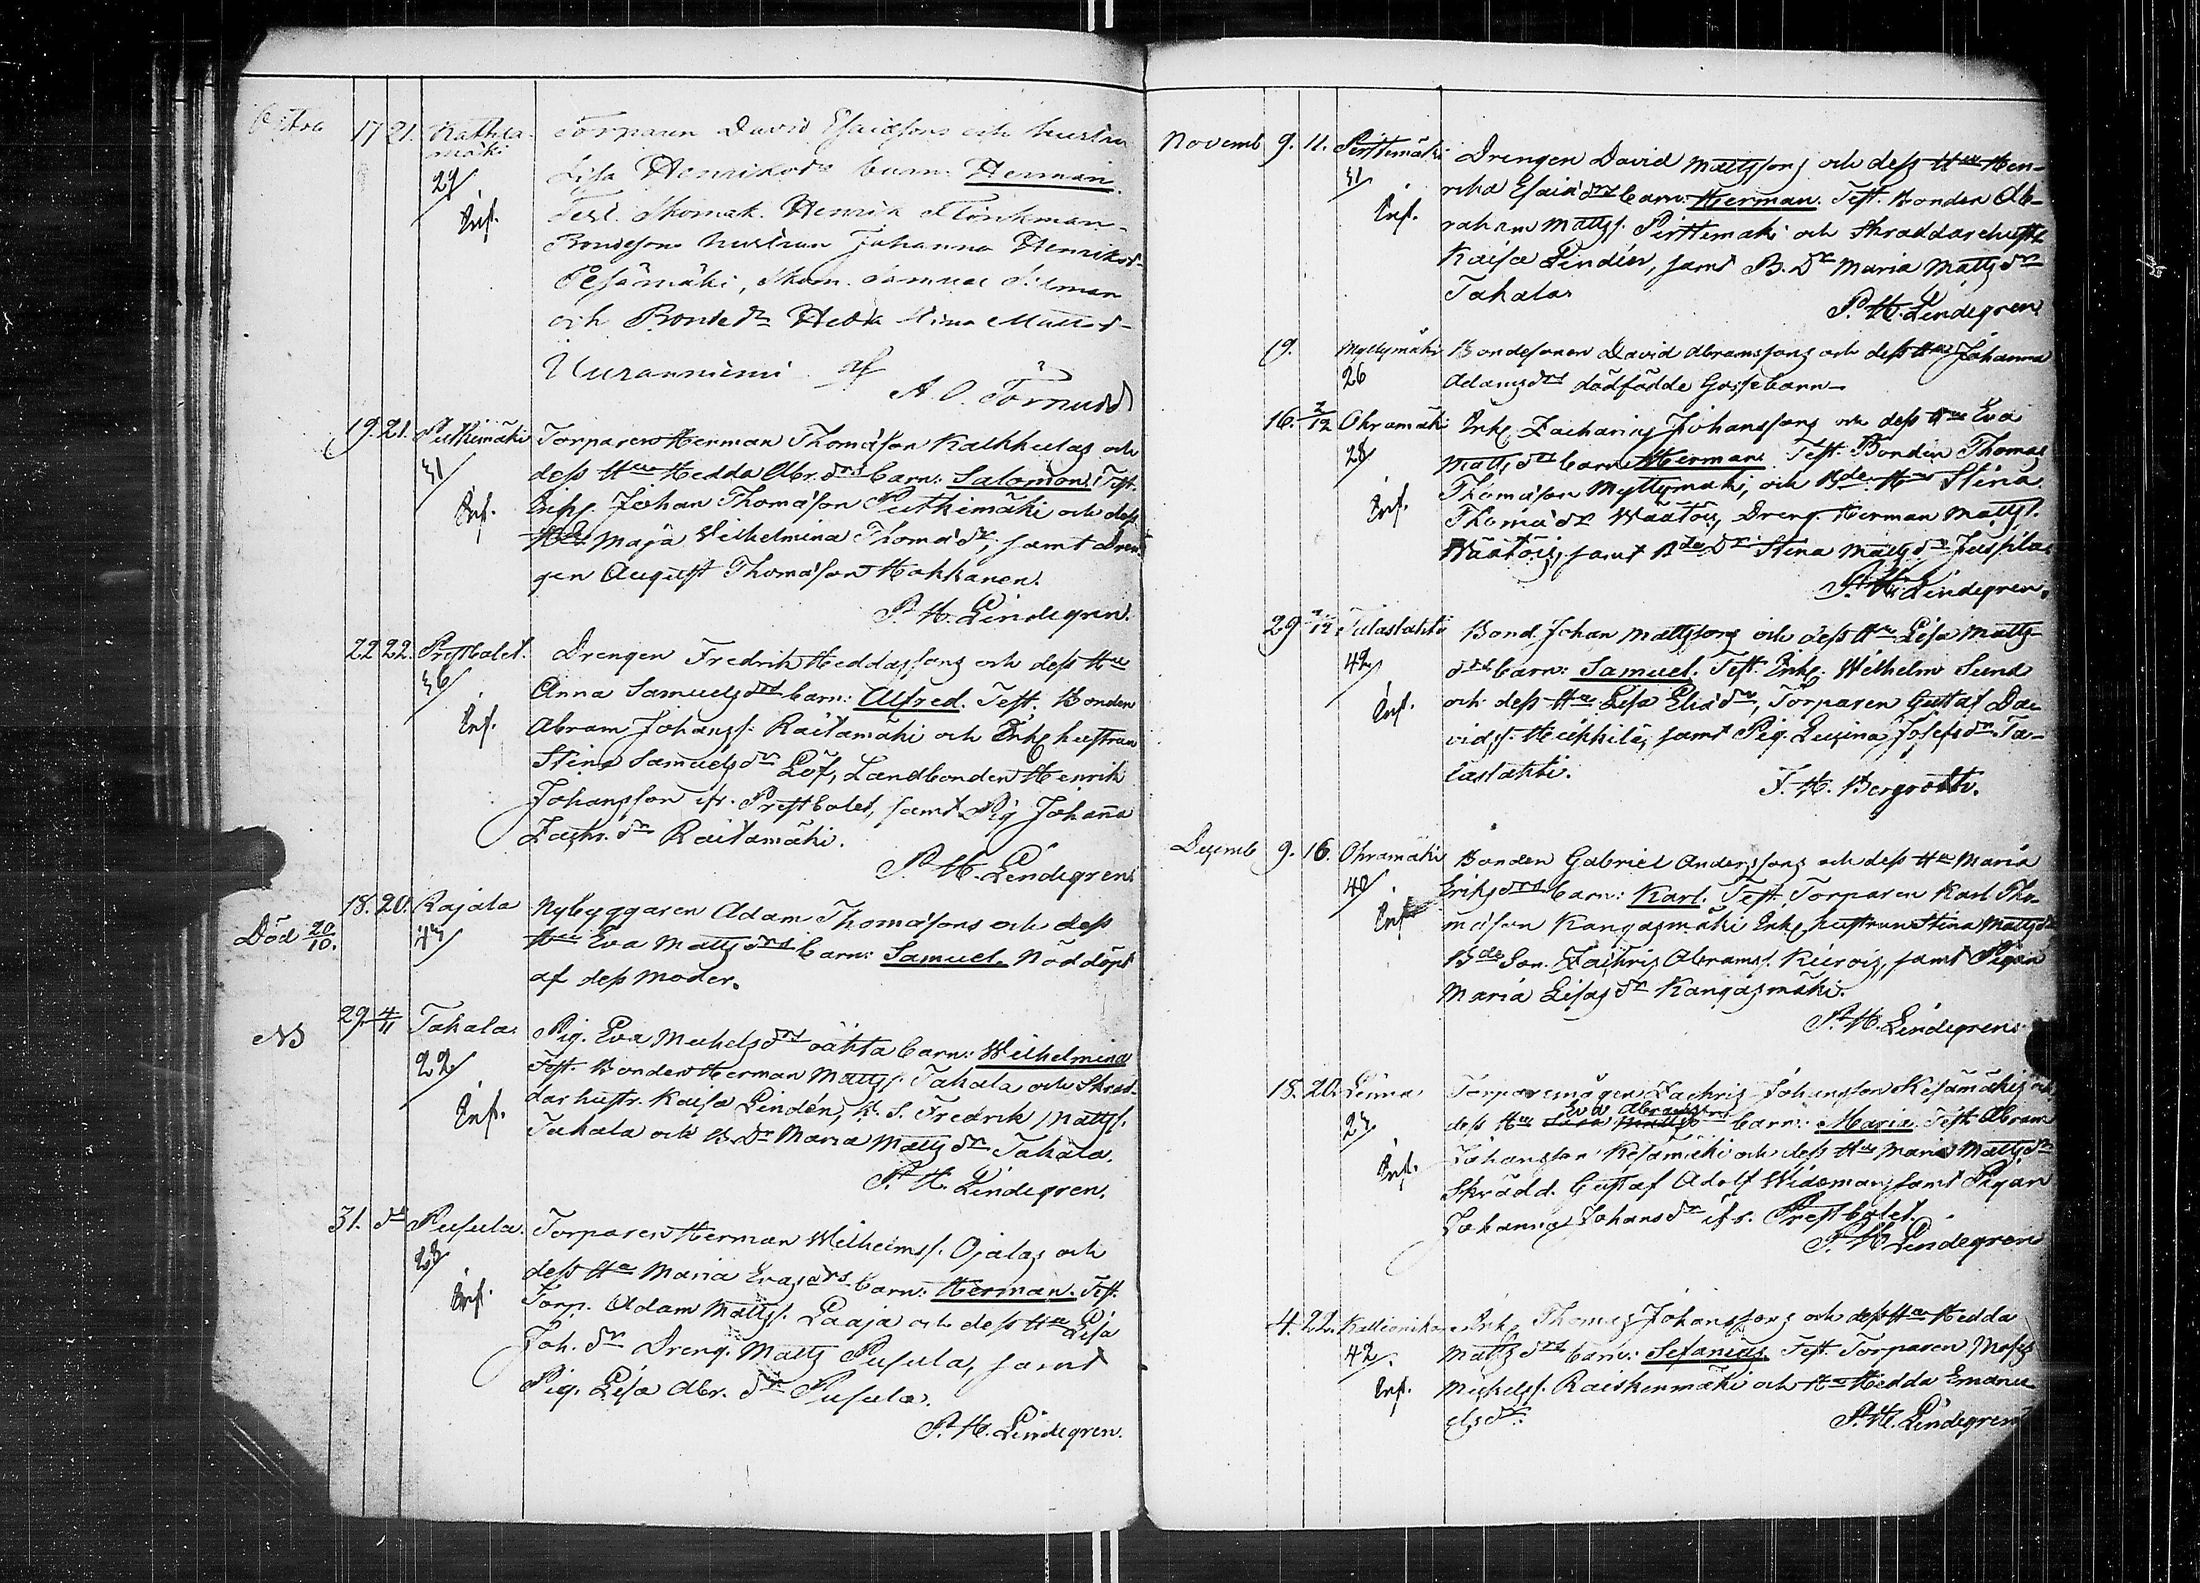 17 21. Kattila Torparen David Esaiasons och hustru
mäki Lisa Henriksdrs barn: Herman.
29/ Test. Skomak. Henrik Flinkman
Inf. Bondesons hustrun Johanna Henriksd
Pesämäki, Skom. Samuel
och Bondedr Hedda Stina Mattsd
Uuranniemi af
A. O. Törnudd
19. 21. Putkimäki Torparen Herman Thomasson Kalkkilas och
31/ dess Hu Hedda Abr. drs barn: Salomon. Test.
Inf. Inhs. Johan Thomasson Putkimäki och dess
Hu Maja Wilhelmina Thomasdr, samt Dren-
gen August Thomasson Hakkanen.
P. H. Lindegren.
22 22. Prestbolet. Drengen Fredrik Heddassons och dess Hu
36/ Anna Samuelsdrs barn: Alfred. Test. Bonden
Inf. Abram Johanss. Raitamäki och Inhs hustrun
Stina Samuelsdr Löf, Landbonden Henrik
Johansson ifr. Prestbolet, samt Pig Johana
Zachr. dr Raitamäki.
P. H. Lindegren.
18. 20. Rajala Nybyggaren Adam Thomassons och dess
Död 20/10. Hu Eva Mattsdrs barn: Samuel. Nöddöpt
af dess Moder.
NB 29. 4/11 Takala. Pig. Eva Michelsdrs oäkta barn: Wilhelmina
22/ Test. Bonden Herman Mattss. Takala och Skräd-
Inf. darhustr. Kaisa Lindén, B. S. Fredrik Mattss.
Takala och B. Dr Maria Mattsdr Takala.
P. H. Lindegren.
31. do Pusula. Torparen Herman Wilhelmss. Ojalas och
28/ dess Hu Maria Evasdrs barn: Herman. Test.
Inf. Torp. Adam Mattss. Laaja och dess Hu Lisa
Joh. dr Dreng. Matts Pusula, samt
Pig. Lisa Abr. dr Pusula.
P. H. Lindegren.
Novemb 9. 11. Pirttimäki Drengen David Mattssons och dess Hu Hen-
31/ rika Esaiædrs barn: Herman. Test. Bonden Ab-
Inf. raham Mattss. Pirttimäki och Skraddarehustr
Kaisa Lindén, samt B. Dr Maria Mattsdr
Takala.
P. H. Lindegren
19. Myllymäki Bondesonen David Abramssons och dess Hu Johanna
26 Adamsdrs dödfödde Gossebarn—
16. 2/12 Ohramäki Inhs Zacharias Johanssons och dess Hu Eva
28/ Mattsdrs barn Herman. Test. Bonden Thomas
Inf. Thomasson Myllymäki, och Bde Hu Stina
Thomasdr Wäätöis, Dreng. Herman Mattss.
Wäätöis, samt Bde Dr Stina Mattsdr Jussilas
P. H. Lindegren.
29 Talaslahti Bond. Johan Mattssons och dess Hu Lisa Matts-
42/ drs barn: Samuel. Test. Inhs. Wilhelm Sund
Inf. och dess Hu Lisa Eliædr, Torparen Gustaf Da-
vidss. Heikkilä, samt Pig. Lusina Josefsdr Ta-
laslahti.
F. H. Bergroth.
Decemb 9. 16. Ohramäki Bonden Gabriel Anderssons och dess Hu Maria
40/ Eriksdrs barn: Karl. Test. Torparen Karl Tho-
Inf masson Kangasmäki Inhs hustrun Stina Mattsdr
Bde Son. Zachris Abramss. Kiirois, samt Pigan
Maria Lisasdr Kangasmäki.
P. H. Lindegren
18. 20. Leinna Torparemågen Zachris Johansson Kesämäkis och
Eva Abramsdrs
dess Hu barn: Maria. Test. Abram
Inf. Johansson Kesämäki och dess Hu Maria Mattsdr
Skrädd. Gustaf Adolf Widoman, samt Pigan
Johanna Johansdr ifr. Prestbolet.
P. H. Lindegren
4. 22. Inhs Thomas Johanssons och dess Hu Hedda
42/. Mattsdrs barn: Sefanias. Test. Torparen Moses
Inf. Michelss. Raiskinmäki och Hu Hedda Emanu-
elsdr.
P. H. Lindegren